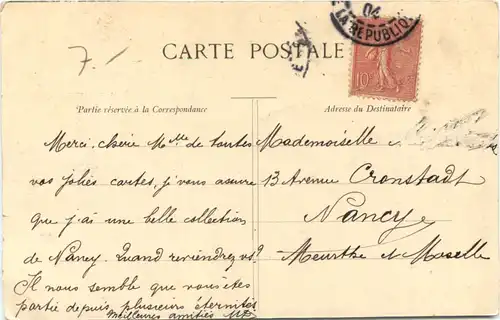 7.-
04
LA REPUBLIQ
CARTE POSTALE
10
Partie réservée à la Correspondance
Adresse du Destinataire
Merci chère Mlle de toutes
vos jolies cartes, je vous assure
que j'ai une belle collection
de Nancy. Quand reviendrez vs?
Il nous semble que vous êtes
partie depuis plusieurs éternités
Meilleures amitiés
Mademoiselle
13 Avenue Cronstadt
Nancy
Meurthe et Moselle